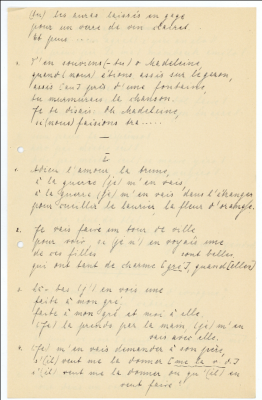 (on) les aurez laissés en gage
pour un verre de vin
Et puis .....
2. T'en souviens (-tu) o Madeleine,
quand (nous) étions assis sur le gazon,
assis (au) près d'une fontaine,
tu murmurais la chanson.
Je te disais: Oh Madeleine,
si (nous) faisions ......
I
1. Adieu l'amour, la brune,
à la guerre (je) m'en vais,
à la guerre, (je) m'en vais dans l'étranger
pour cueillir le laurier la fleur d'oranger.
2. Je vais faire un tour de ville
pour voir, si je n'en voyais une
de ces filles sont belles,
qui ont tant de charme (gré), quand (elles)
3. Là-bas (j')en vois une
faite à mon gré,
faite à mon gré et moi à elle.
(Je) la prends par la main (je) m'en
vais avec elle.
4. (Je) m'en vais demander à son père,
s'(il) veut me la donner
s'(il) veut me la donner ou qu'(il) en
veut faire